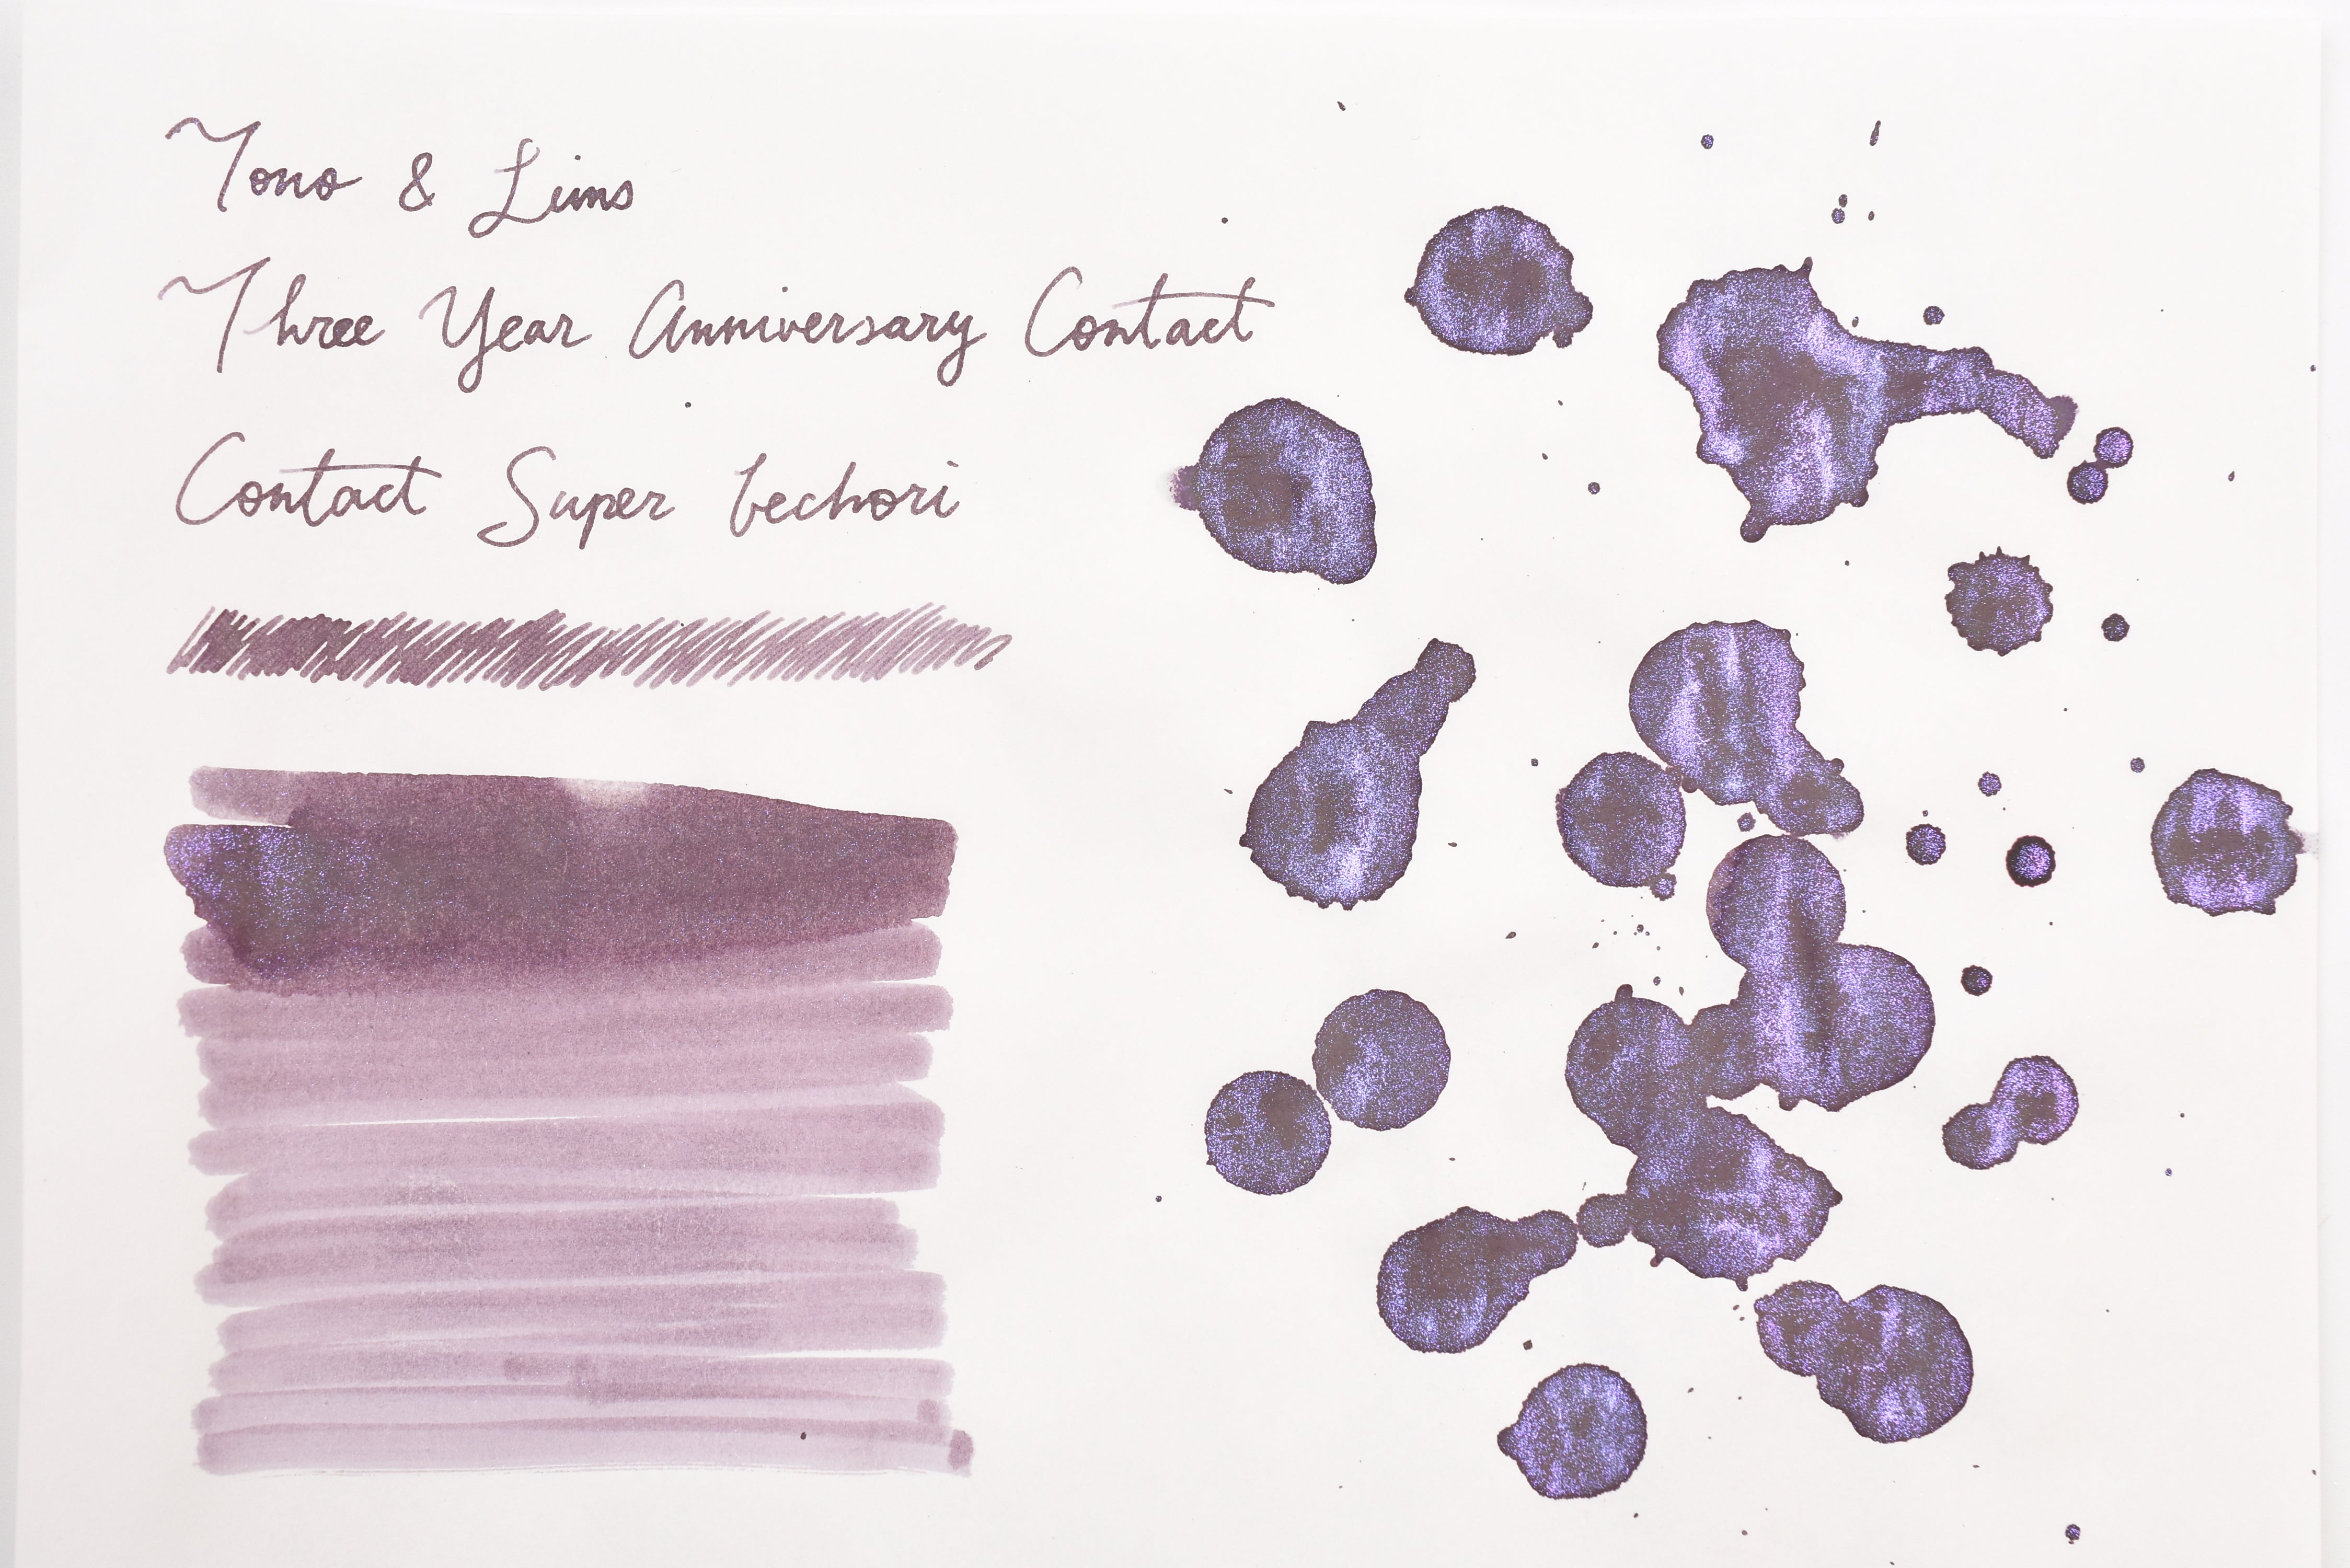 Tono & Lims
Three Year Anniversary Contact
Contact Super Techori